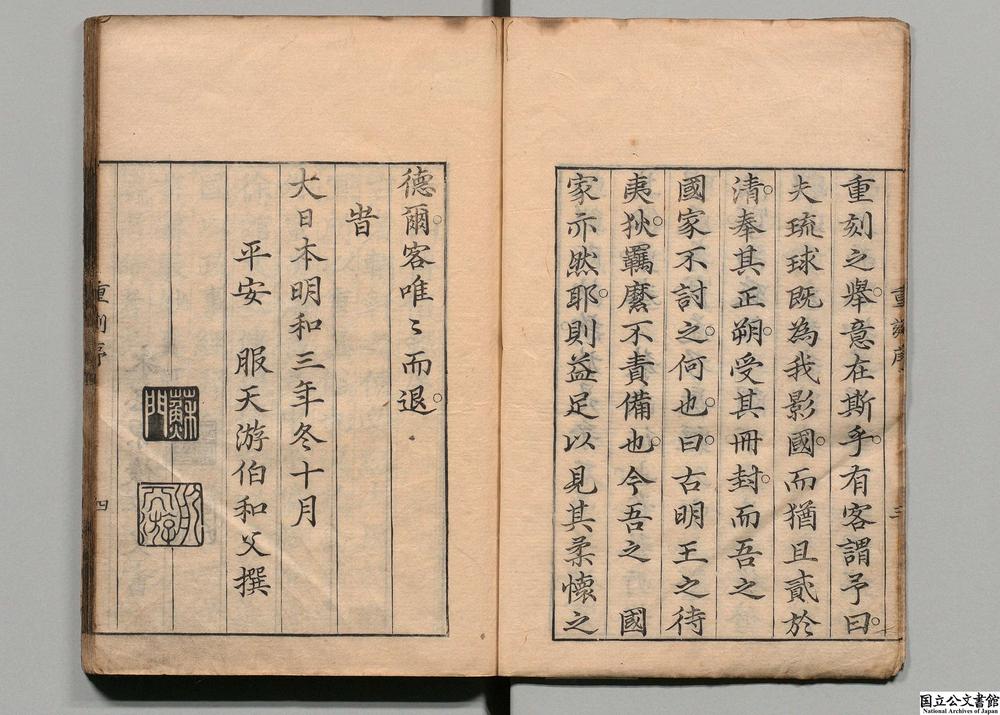 重刻之舉。意在斯乎。有客謂予曰。
夫琉球既為我影國。而猶且貳於
清。奉其正朔。受其冊封。而吾之
國家不討之。何也。曰。古明王之待
夷狄。羈縻不責備也。今吾之　國
家亦然耶。則益足以見其柔懷之
重刻序
三
德爾。客唯〻而退。
旹
大日本明和三年冬十月
平安　服天游伯和父撰
蘇門
重刻序
四
国立公文書館
National Archives of Japan